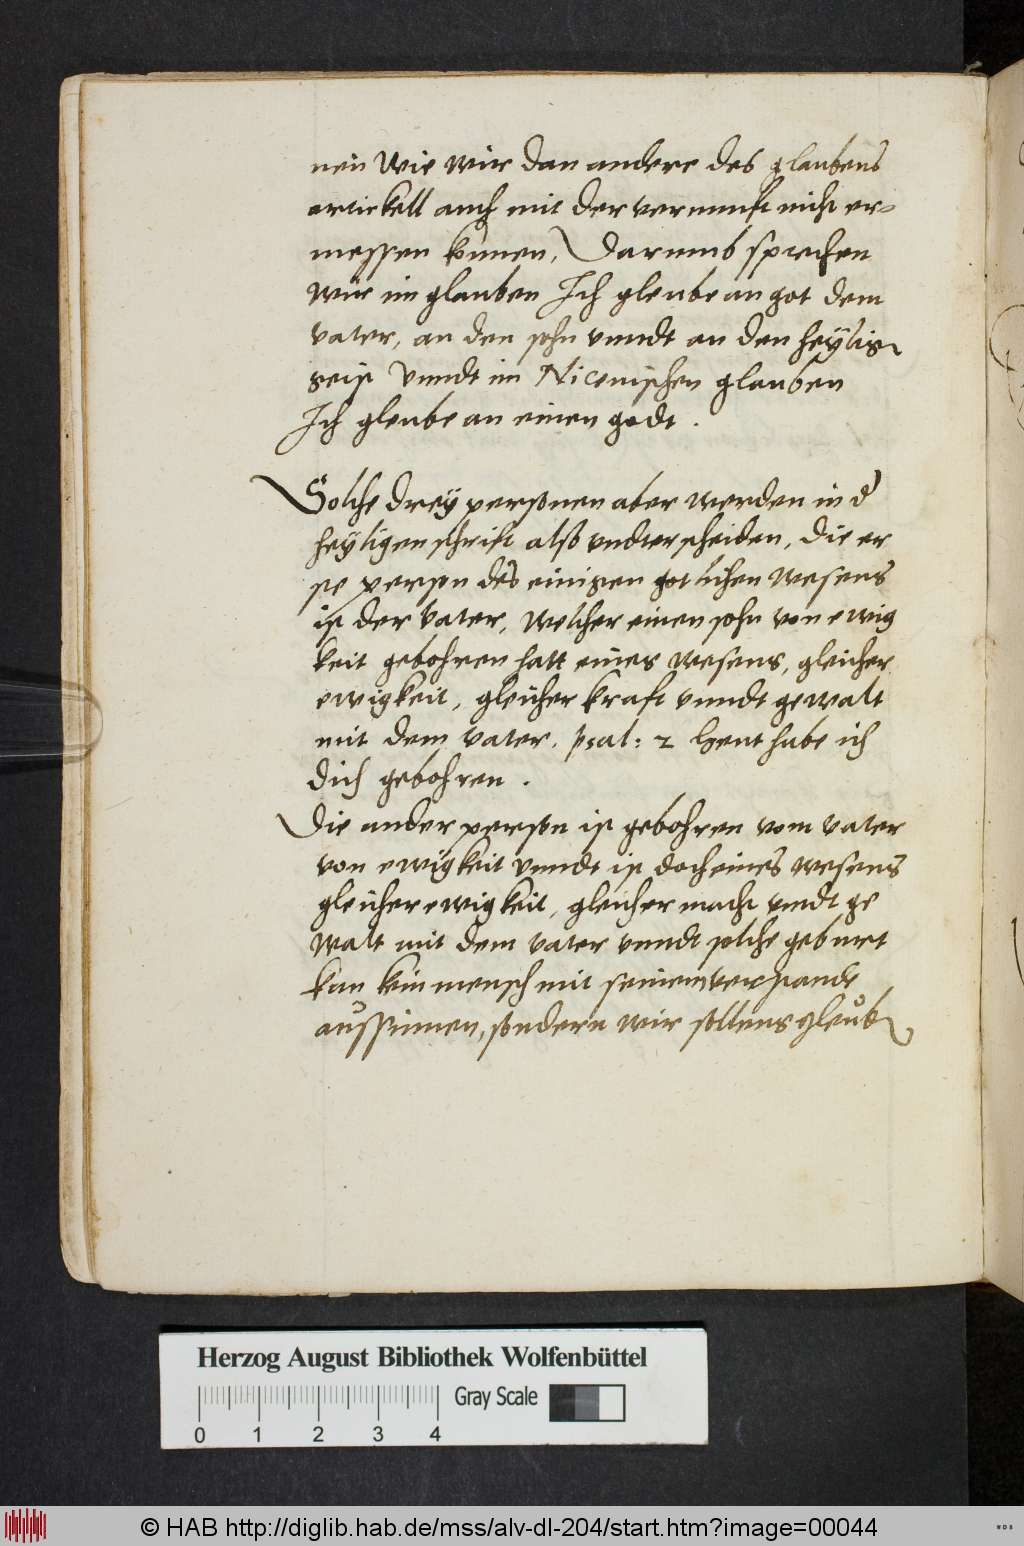 nen wie wir dan andere des glaubens
artickell auch mit der vernunft nicht er=
messen können, Darumb sprechen
wir im glauben Ich gleube an got dem
vater, an den sohn vnndt an den heylig
geist Vnndt im Nicenischen glauben
Ich gleube an einen godt.
Solche drey personen aber werden in d
heyligen schrift also vndterscheiden, die er
ste person des einigen gotlichen wesens
ist der vater, welcher einen sohn von ewig
keit gebohren hatt eines wesens, gleicher
ewigkeit, gleicher kraft vnndt gewalt
mit dem vater. psal: 2 Heut habe ich
dich gebohren.
Die ander person ist gebohren vom vater
von ewigkeit vnndt ist doch eines wesens
gleicher ewigkeit, gleicher macht vndt ge
walt mit dem vater vnndt solche geburt
kan kein mensch mit seinem verstande
aussinnen, sondern wir sollens gleub
Herzog August Bibliothek Wolfenbüttel
Gray Scale
0 1 2 3 4
© HAB http://diglib.hab.de/mss/alv-dl-204/start.htm?image=00044